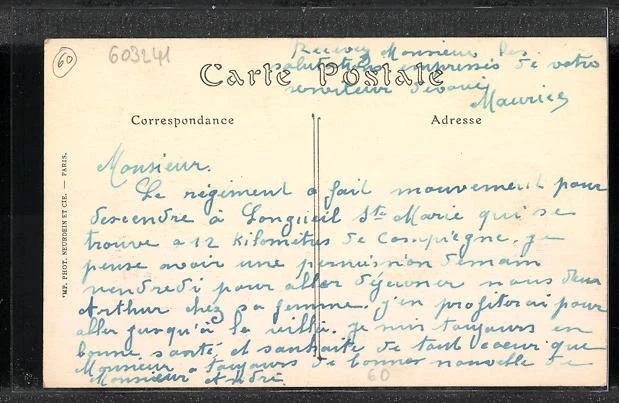 60
603241
Recevez Monsieur les
salutations empressés de votre
serviteur dévoué
Maurice
Carte Postale
Correspondance
Adresse
Monsieur.
Le régiment a fait mouvement pour
descendre à Longueil Ste Marie qui se
trouve a 12 kilomètres de Compiègne. je
pense avoir une permission demain
vendredi pour aller déjeuner nous deux
Arthur chez sa femme. j'en profiterai pour
aller jusqu'à la ville. je suis toujours en
bonne santé et souhaite de tout coeur que
Monsieur a toujours de bonnes nouvelle de
Monsieur André
60
IMP. PHOT. NEURDEIN ET CIE. — PARIS.